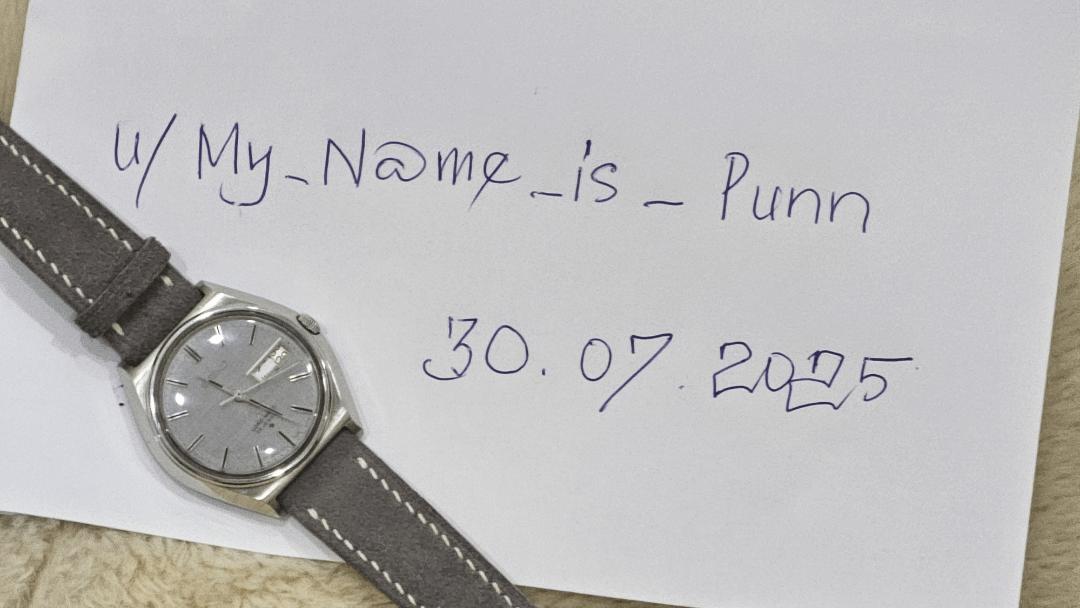 u/My_N@me_is_Punn
30.07.2025